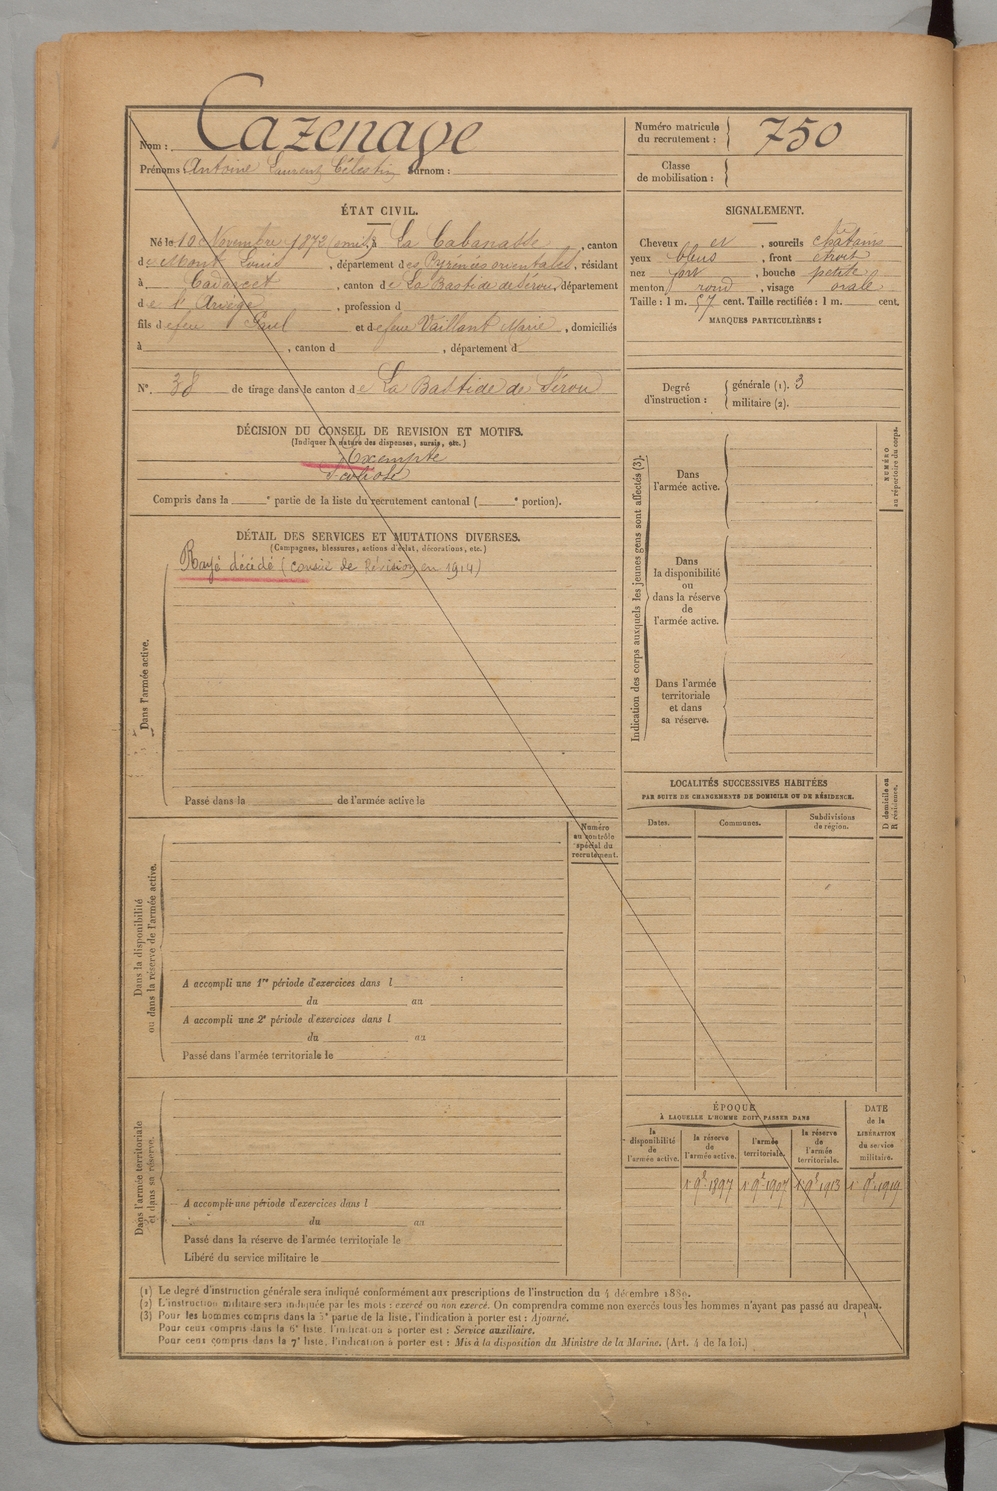 Nom : Cazenave
Prénoms : Antoine Laurent Célestin Surnom :
Numéro matricule du recrutement : 750
Classe de mobilisation :
ÉTAT CIVIL.
Né le 10 Novembre 1872 (omis) à La Cabanasse, canton
de Mont Louis, département des Pyrénées orientales, résidant
à Cadarcet, canton de La Bastide de Sérou, département
de l'Ariège, profession d
fils de feu Paul et de feue Vaillant Marie, domiciliés
à , canton d , département d
N° 38 de tirage dans le canton de La Bastide de Sérou
SIGNALEMENT.
Cheveux et , sourcils châtains
yeux bleus , front étroit
nez fort , bouche petite
menton rond , visage ovale
Taille : 1 m. 57 cent. Taille rectifiée : 1 m. cent.
MARQUES PARTICULIÈRES :
Degré d'instruction : générale (1). 3
militaire (2).
DÉCISION DU CONSEIL DE REVISION ET MOTIFS.
(Indiquer la nature des dispenses, sursis, etc.)
Exempté
Scoliose
Compris dans la e partie de la liste du recrutement cantonal ( e portion).
DÉTAIL DES SERVICES ET MUTATIONS DIVERSES.
(Campagnes, blessures, actions d'éclat, décorations, etc.)
Rayé décédé (Conseil de Révision en 1914)
Dans l'armée active.
Passé dans la de l'armée active le
Indication des corps auxquels les jeunes gens sont affectés (3).
Dans
l'armée active.
Dans
la disponibilité
ou
dans la réserve
de
l'armée active.
Dans l'armée
territoriale
et dans
sa réserve.
NUMÉRO
au répertoire du corps.
LOCALITÉS SUCCESSIVES HABITÉES
PAR SUITE DE CHANGEMENTS DE DOMICILE OU DE RÉSIDENCE.
Dates.
Communes.
Subdivisions
de région.
D domicile ou
R résidence.
Numéro
au contrôle
spécial du
recrutement.
Dans la disponibilité
ou dans la réserve de l'armée active.
A accompli une 1re période d'exercices dans l
du au
A accompli une 2e période d'exercices dans l
du au
Passé dans l'armée territoriale le
Dans l'armée territoriale
et dans sa réserve.
A accompli une période d'exercices dans l
du au
Passé dans la réserve de l'armée territoriale le
Libéré du service militaire le
ÉPOQUE
À LAQUELLE L'HOMME DOIT PASSER DANS
la
disponibilité
de
l'armée active.
la réserve
de
l'armée active.
l'armée
territoriale.
la réserve
de
l'armée
territoriale.
DATE
de la
LIBÉRATION
du service
militaire.
1 9e 1897 1 9e 1907 1 9e 1913 1 9e 1919
(1) Le degré d'instruction générale sera indiqué conformément aux prescriptions de l'instruction du 4 décembre 1889.
(2) L'instruction militaire sera indiquée par les mots : exercé ou non exercé. On comprendra comme non exercés tous les hommes n'ayant pas passé au drapeau.
(3) Pour les hommes compris dans la 5e partie de la liste, l'indication à porter est : Ajourné.
Pour ceux compris dans la 6e liste, l'indication à porter est : Service auxiliaire.
Pour ceux compris dans la 7e liste, l'indication à porter est : Mis à la disposition du Ministre de la Marine. (Art. 4 de la loi.)